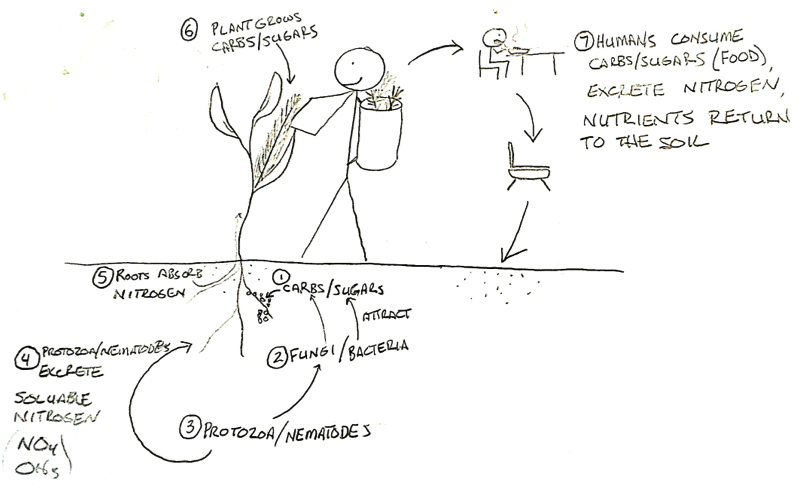 ⑥ PLANT GROWS
CARBS/SUGARS
⑦ HUMANS CONSUME
CARBS/SUGARS (FOOD),
EXCRETE NITROGEN,
NUTRIENTS RETURN
TO THE SOIL
⑤ ROOTS ABSORB
NITROGEN
①
CARBS/SUGARS
ATTRACT
② FUNGI/BACTERIA
④ PROTOZOA/NEMATODES
EXCRETE
SOLUABLE
NITROGEN
(NO4)
OH5
③ PROTOZOA/NEMATODES